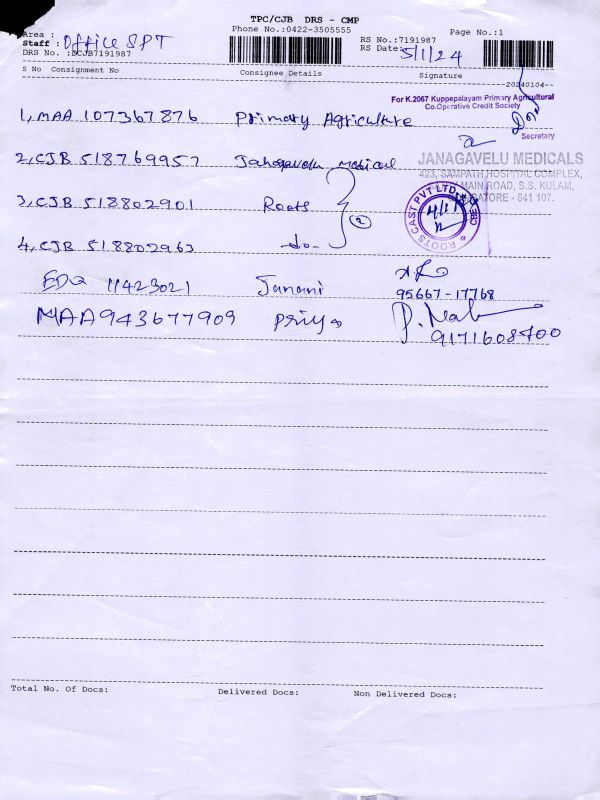 TPC/CJB DRS - CMP
Phone No.:0422-3505555
Page No.:1
Area :
Staff : Office SPT
RS No.:7191987
RS Date: 5/1/24
DRS No. :DCJB7191987
S No Consignment No Consignee Details Signature
--20240104--
For K.2067 Kuppepalayam Primary Agricultural
Co.Operative Credit Society
Secretary
1, MAA 107367876 Primary Agriculture
2, CJB 518769957 Janagavelu Medical
JANAGAVELU MEDICALS
423, SAMPATH HOSPITAL COMPLEX,
MAIN ROAD, S.S. KULAM,
COIMBATORE - 641 107.
3, CJB 518802901 Roots
2
ROOTS CAST PVT LTD CBE
4, CJB 518802963 do-
EDQ 11423021 Janani
95667-17768
MAA943677909 Priya
9171608700
Total No. Of Docs: Delivered Docs: Non Delivered Docs: